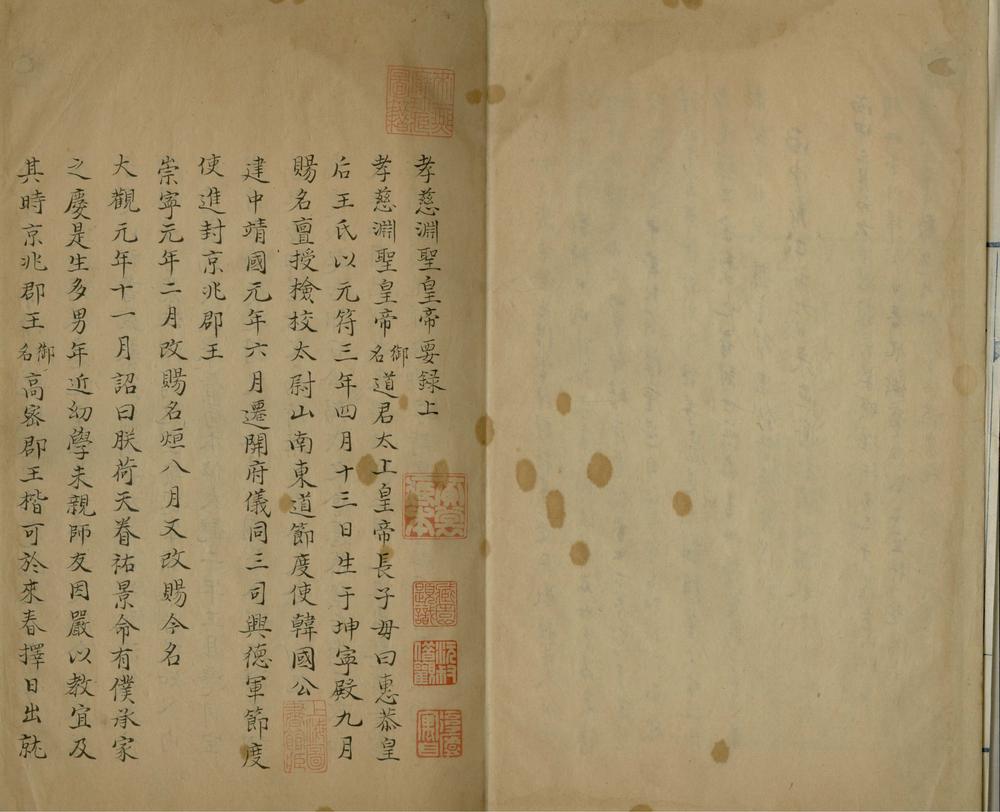 孝慈淵聖皇帝要録上
孝慈淵聖皇帝御名道君太上皇帝長子母曰惠恭皇
后王氏以元符三年四月十三日生于坤寧殿九月
賜名亶授檢校太尉山南東道節度使韓國公
建中靖國元年六月遷開府儀同三司興德軍節度
使進封京兆郡王
崇寧元年二月改賜名烜八月又改賜今名
大觀元年十一月詔曰朕荷天眷祐景命有僕承家
之慶是生多男年近幼學未親師友因嚴以教宜及
其時京兆郡王御名高密郡王楷可於來春擇日出就